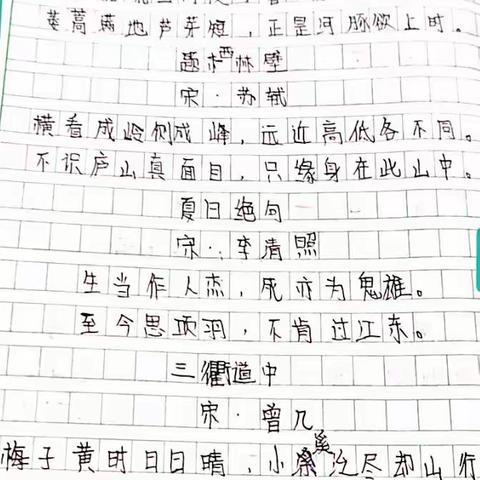 蒌蒿满地芦芽短，正是河豚欲上时。
题西林壁
宋·苏轼
横看成岭侧成峰，远近高低各不同。
不识庐山真面目，只缘身在此山中。
夏日绝句
宋·李清照
生当作人杰，死亦为鬼雄。
至今思项羽，不肯过江东。
三衢道中
宋·曾几
梅子黄时日日晴，小溪泛尽却山行